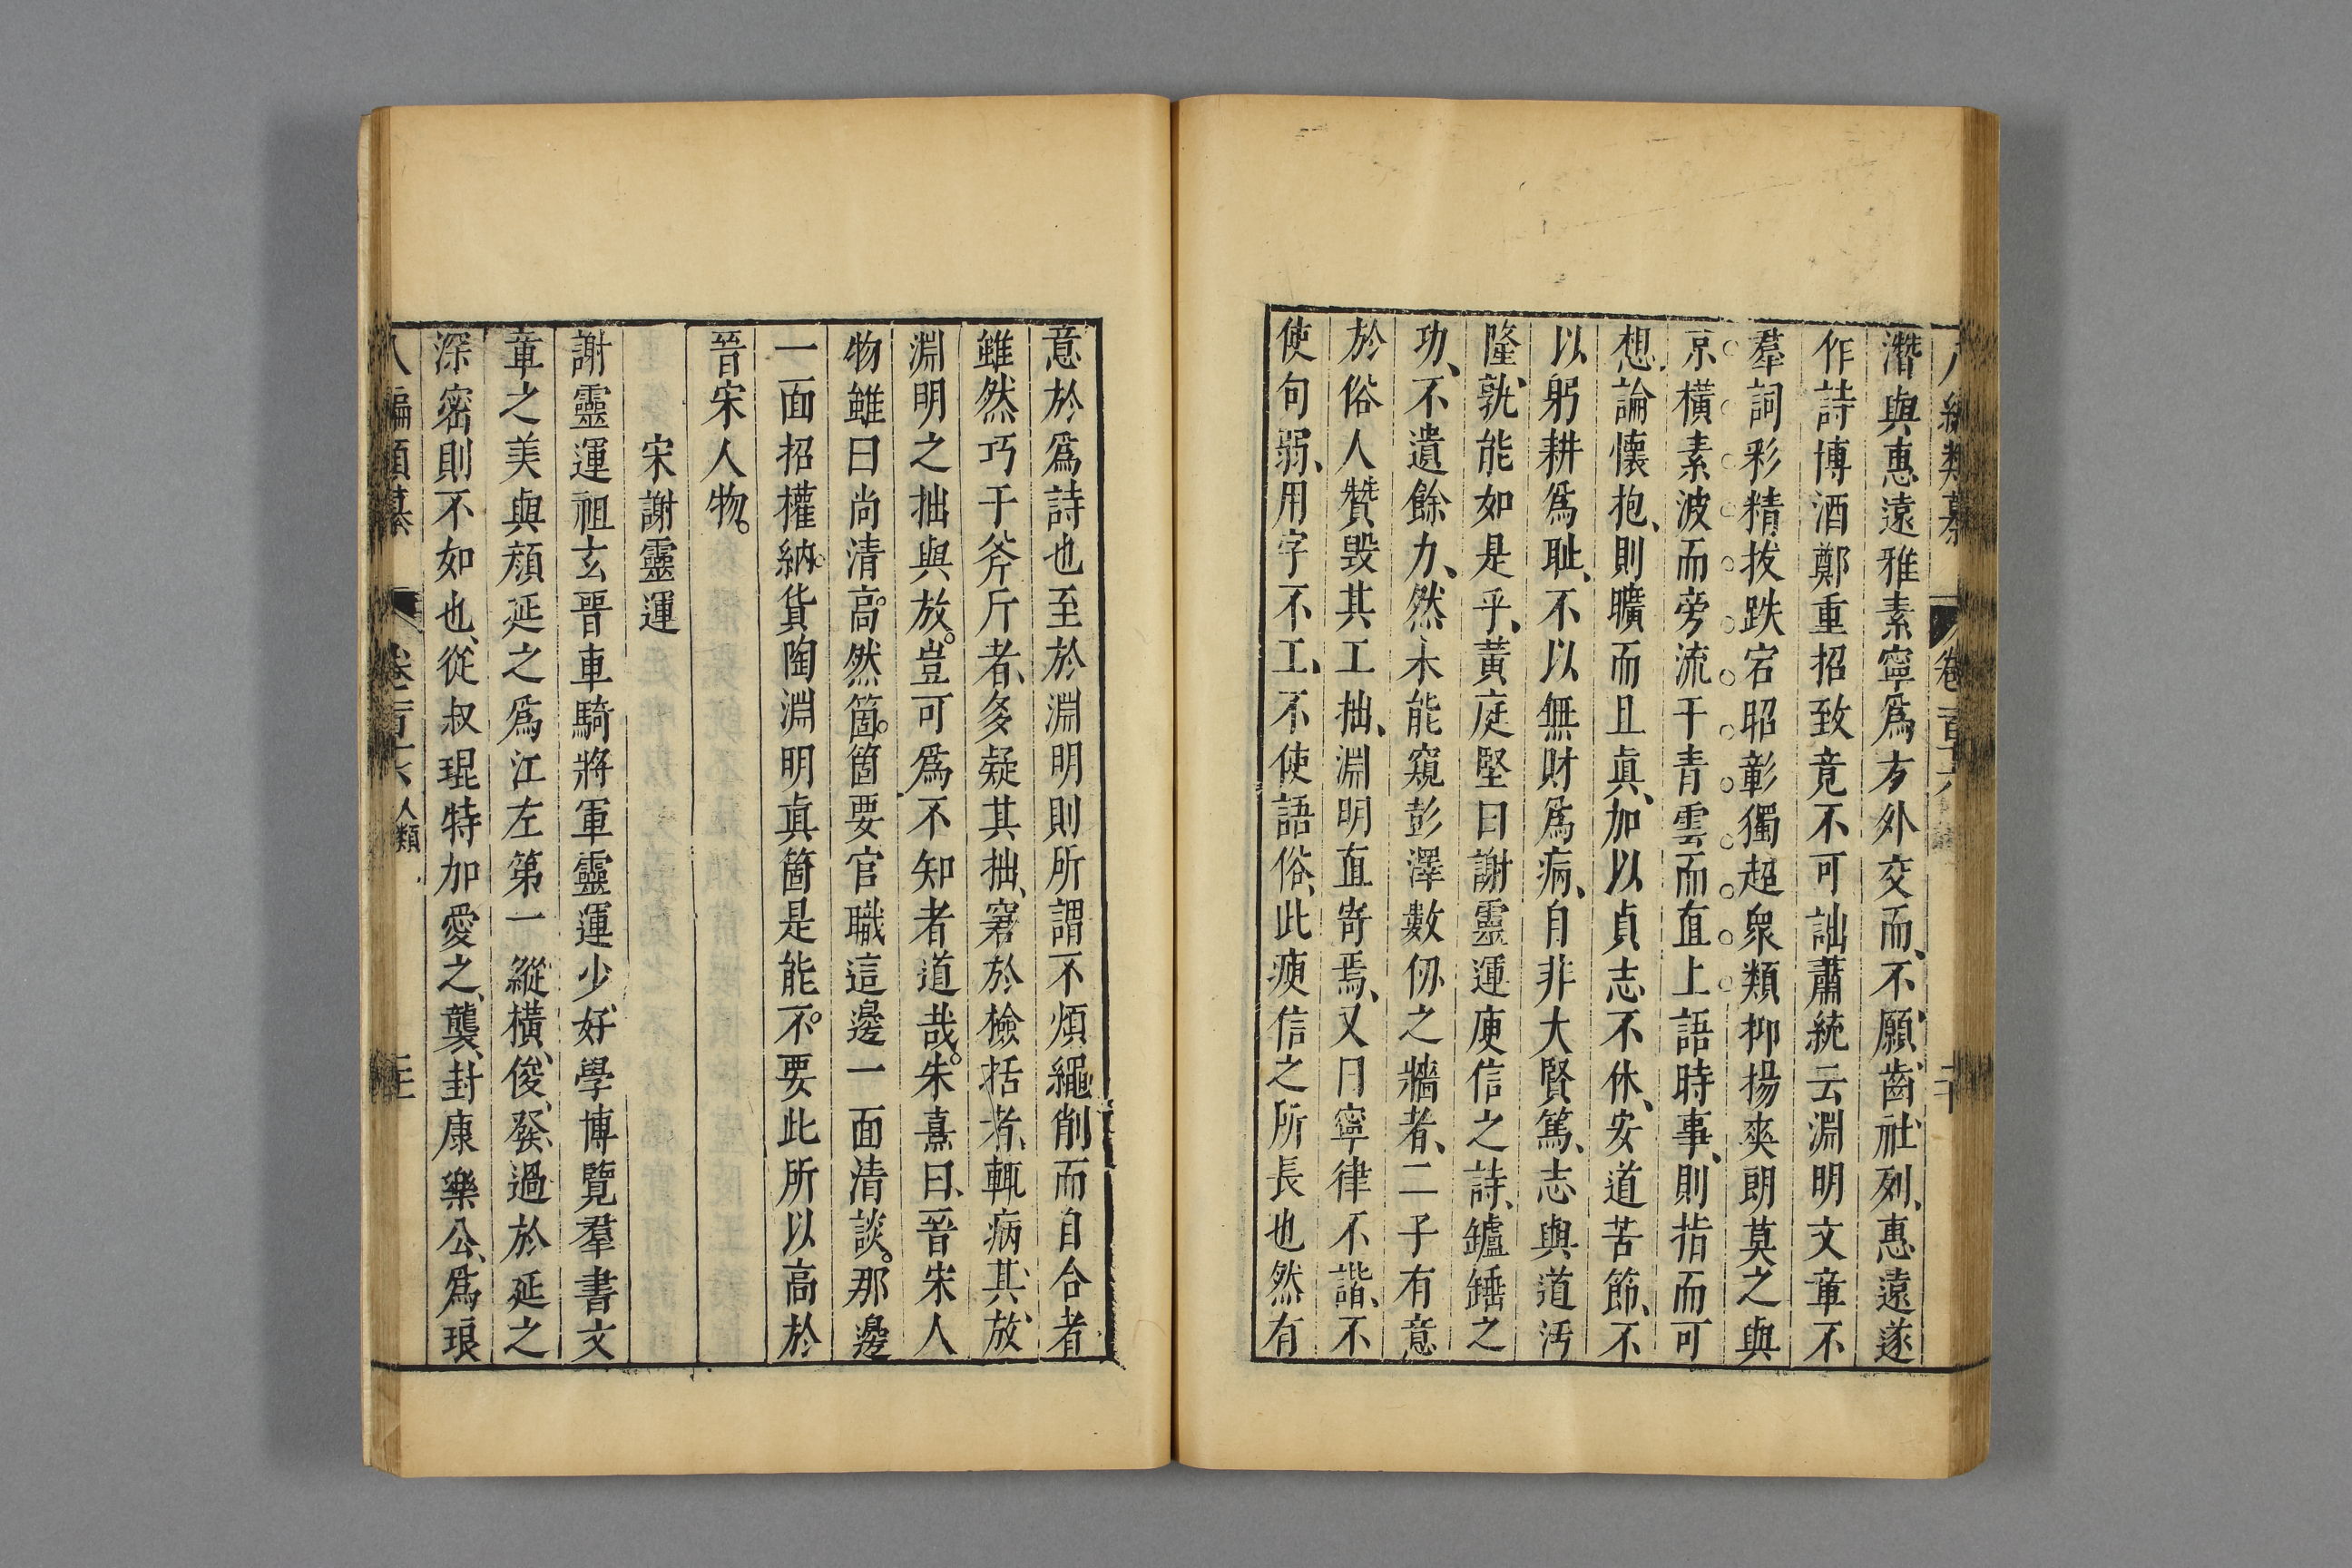 八編類纂 卷一百十六
潛與惠遠雅素寧爲方外交而不願齒社列惠遠遂
作詩博酒鄭重招致竟不可詘蕭統云淵明文章不
羣詞彩精拔跌宕昭彰獨超衆類抑揚爽朗莫之與
京橫素波而旁流干青雲而直上語時事則指而可
想論懷抱則曠而且真加以貞志不休安道苦節不
以躬耕爲耻不以無財爲病自非大賢篤志與道汚
隆孰能如是乎黃庭堅曰謝靈運庾信之詩鑪錘之
功不遺餘力然未能窺彭澤數仭之牆者二子有意
於俗人贊毀其工拙淵明直寄焉又曰寧律不諧不
使句弱用字不工不使語俗此庾信之所長也然有
意於爲詩也至於淵明則所謂不煩繩削而自合者
雖然巧于斧斤者多疑其拙窘於檢括者輒病其放
淵明之拙與放豈可爲不知者道哉朱熹曰晉宋人
物雖曰尚清高然箇箇要官職這邊一面清談那邊
一面招權納貨陶淵明真箇是能不要此所以高於
晉宋人物
宋謝靈運
謝靈運祖玄晉車騎將軍靈運少好學博覽羣書文
章之美與顔延之爲江左第一縱橫俊發過於延之
深密則不如也從叔琨特加愛之襲封康樂公爲琅
八編類纂 卷一百十六 人類